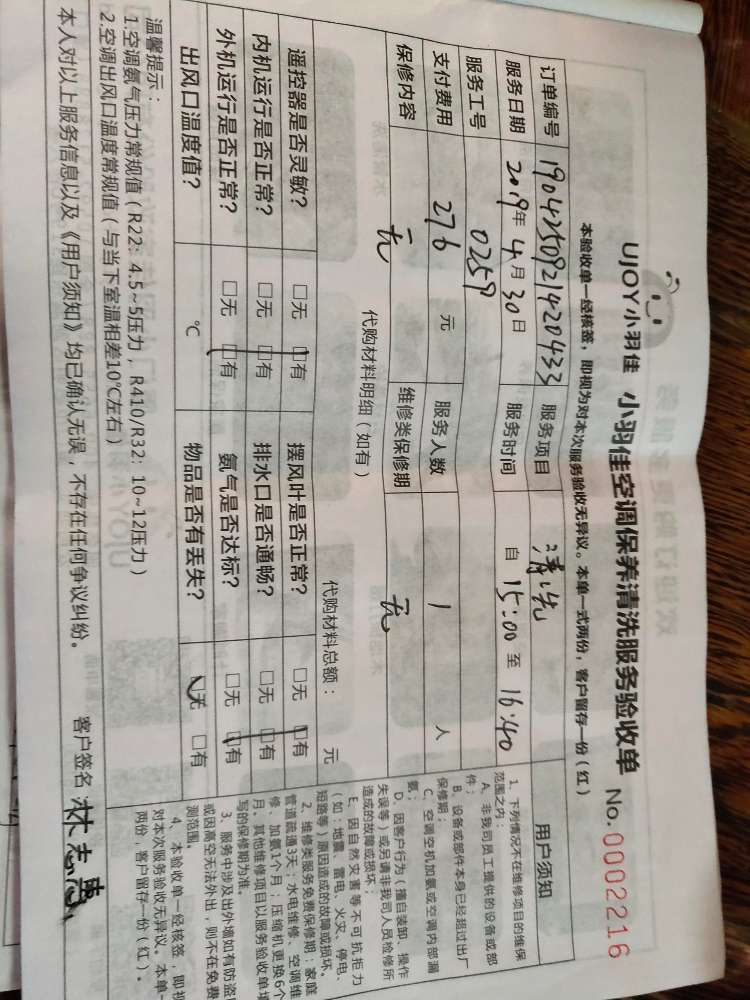 UJOY小羽佳 小羽佳空调保养清洗服务验收单 No. 0002216
本验收单一经核签，即视为对本次服务验收无异议。本单一式两份，客户留存一份（红）
订单编号 1904250921420433 服务项目 清洗
服务日期 2019年4月30日 服务时间 自 15:00 至 16:40
服务工号 0259
支付费用 276 元 服务人数 1 人
保修内容 无 维修类保修期 无
代购材料明细（如有） 代购材料总额： 元
遥控器是否灵敏？ □无 □有 摆风叶是否正常？ □无 □有
内机运行是否正常？ □无 □有 排水口是否通畅？ □无 □有
外机运行是否正常？ □无 □有 氨气是否达标？ □无 □有
出风口温度值？ ℃ 物品是否有丢失？ □无 □有
温馨提示：
1.空调氨气压力常规值（R22：4.5~5压力，R410/R32：10~12压力）
2.空调出风口温度常规值（与当下室温相差10℃左右）
本人对以上服务信息以及《用户须知》均已确认无误，不存在任何争议纠纷。 客户签名
用户须知
1、下列情况不在维修项目的维保
范围之内：
A、非我司员工提供的设备或部
件；
B、设备或部件本身已经超过出厂
保修期；
C、空调空机加氨或空调内部漏
氨；
D、因客户行为（擅自装卸、操作
失误等）或另请非我司人员检修所
造成的故障或损坏；
E、因自然灾害等不可抗拒力
（如：地震、雷电、火灾、停电、
短路等）原因造成的故障或损坏。
2、维修类服务免费保修期：家庭
管道疏通3天；水电维修、空调维
修、加氨1个月；压缩机更换6个
月。其他维修项目以服务验收单填
写的保修期为准。
3、服务中涉及出外墙如有防盗
或因高空无法外出，则不在免费
测范围。
4、本验收单一经核签，即视
对本次服务验收无异议。本单一
两份，客户留存一份（红）。